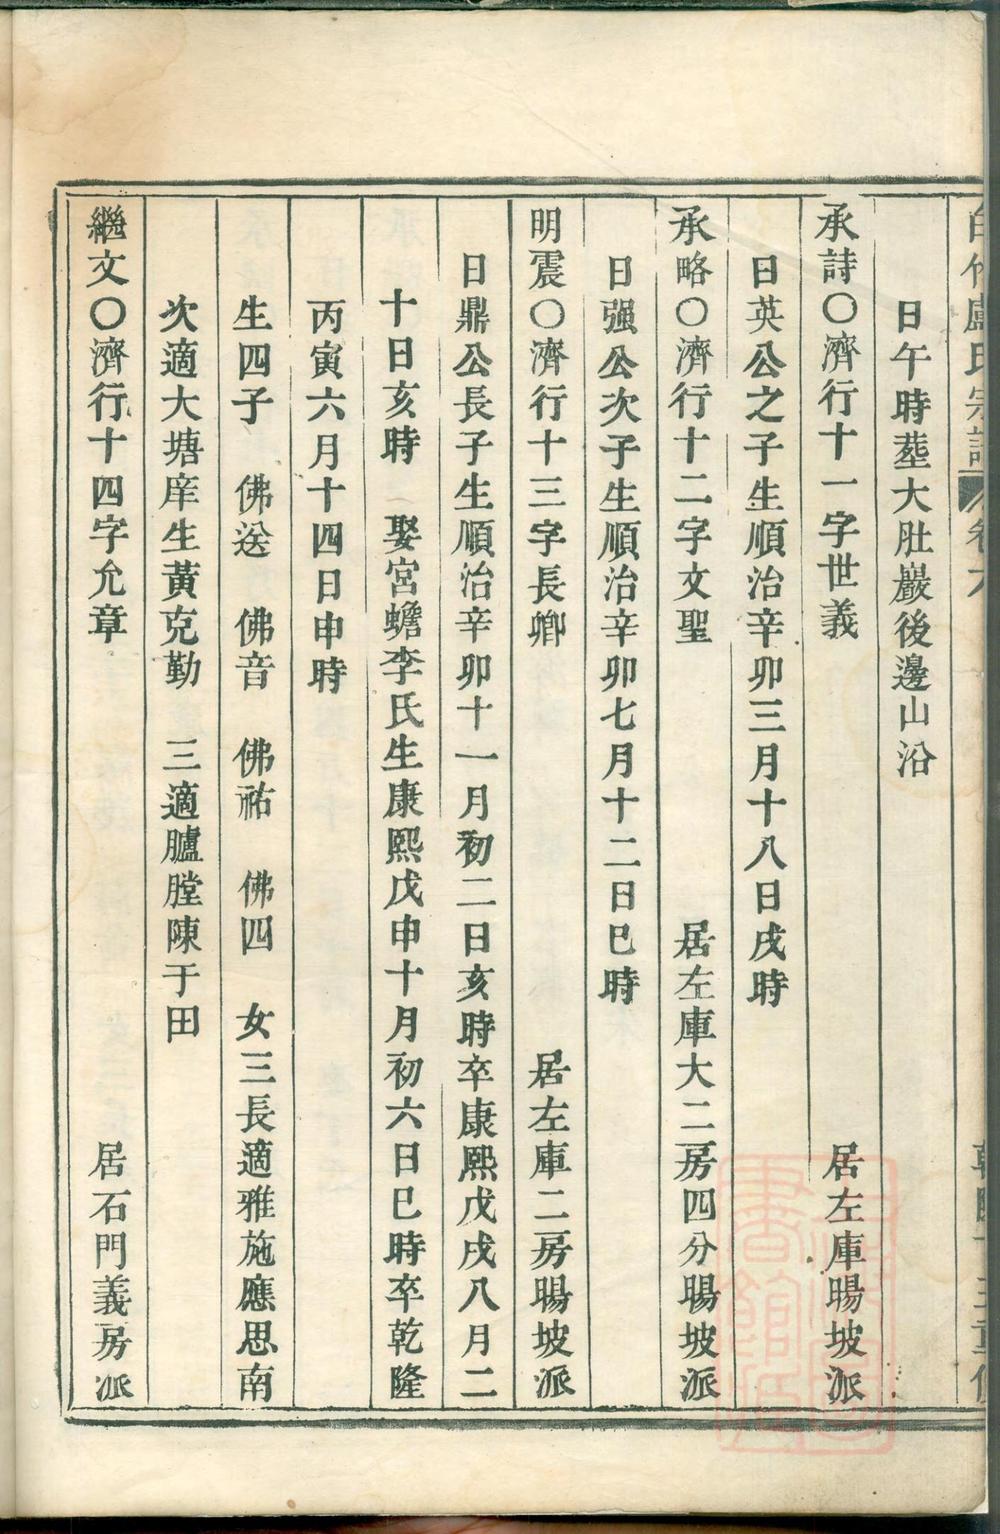 盧氏宗譜 卷六
日午時塟大肚巖後邊山沿
承詩〇濟行十一字世義 居左庫暘坡派
日英公之子生順治辛卯三月十八日戌時
承略〇濟行十二字文聖 居左庫大二房四分暘坡派
日强公次子生順治辛卯七月十二日巳時
明震〇濟行十三字長卿 居左庫二房暘坡派
日鼎公長子生順治辛卯十一月初二日亥時卒康熙戊戌八月二
十日亥時 娶宮蟾李氏生康熙戊申十月初六日巳時卒乾隆
丙寅六月十四日申時
生四子 佛送 佛音 佛祐 佛四 女三長適雅施應思南
次適大塘庠生黃克勤 三適臚膛陳于田
繼文〇濟行十四字允章 居石門義房派